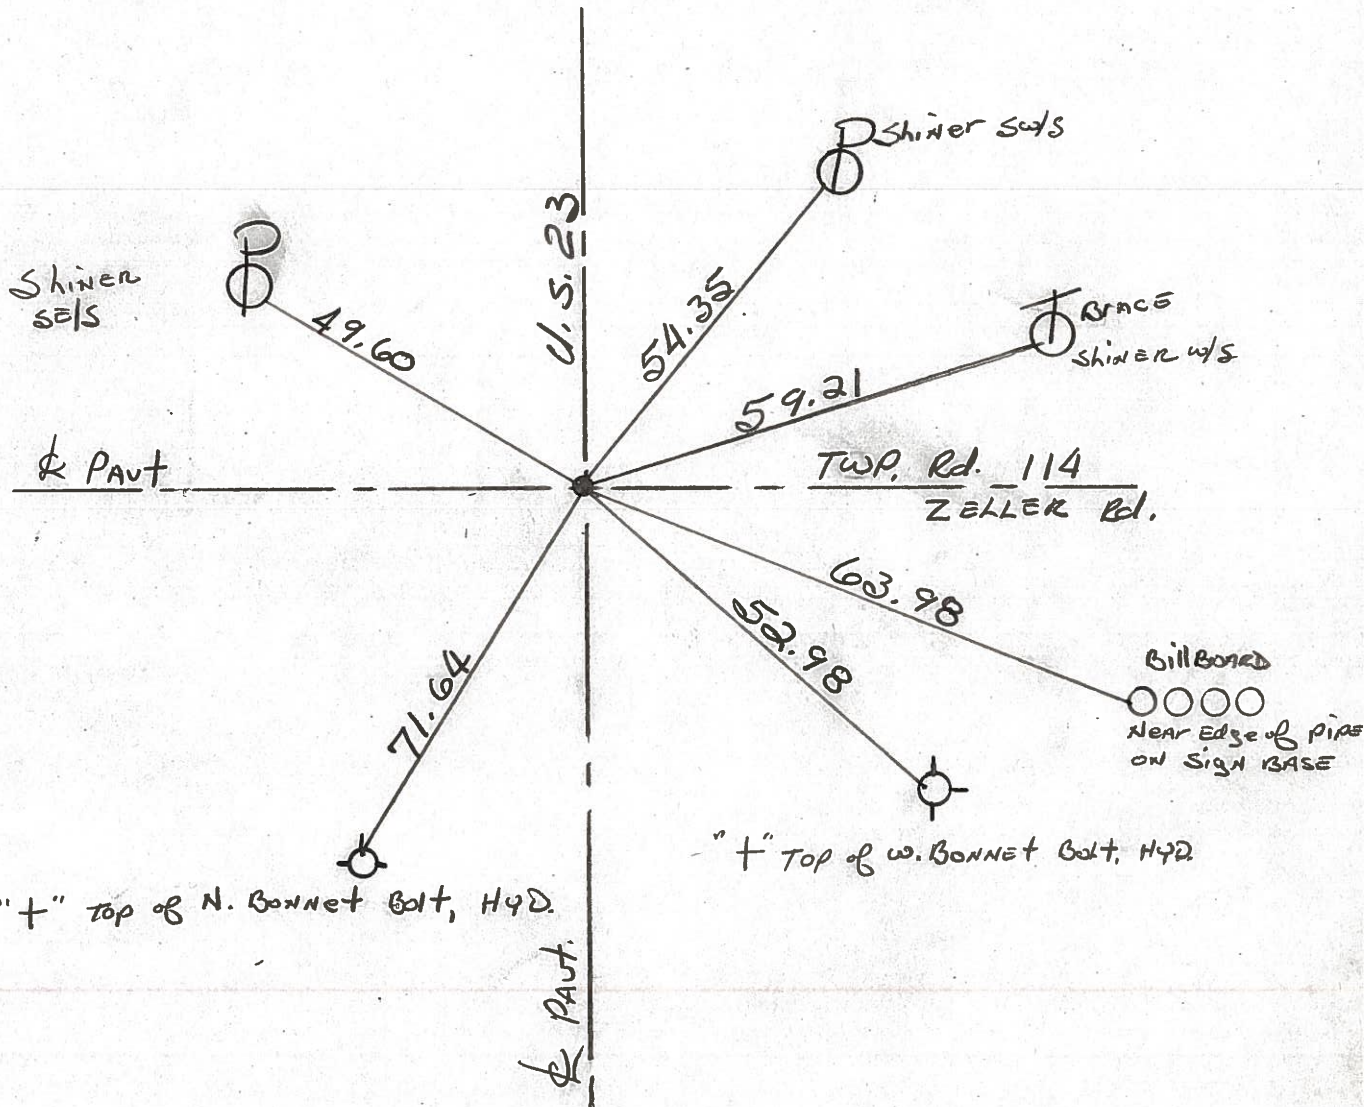 P Shiner SW/S
U.S. 23
P
Shiner
SE/S
49.60
54.35
T BrACE
SHINER W/S
59.21
℄ PAvt
TWP. Rd. 114
ZELLER Rd.
63.98
52.98
71.64
BillBOARD
Near Edge of PiPE
ON SigN BASE
"+" TOP of W. BONNEt Bolt, HYD.
"+" Top of N. BonNet Bolt, HYD.
℄ PAvt.